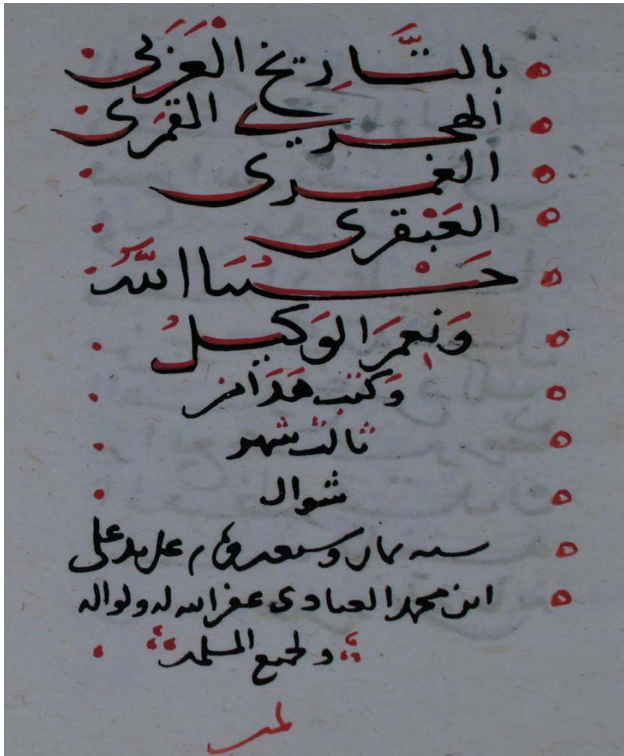 بالتَّارِيخ العَرَبى
الهجرى القمَرى
العمرى
العَبْقرى
حَسْبنَا اللهُ
وَنِعمَ الوَكيلُ
وَكتب هَذا مِن
ثالث شهر
شوال
سنه ثمان وسبعين على يد على
ابن محمد العبادى عفر الله له ولوالديه
ولجميع المسلمين